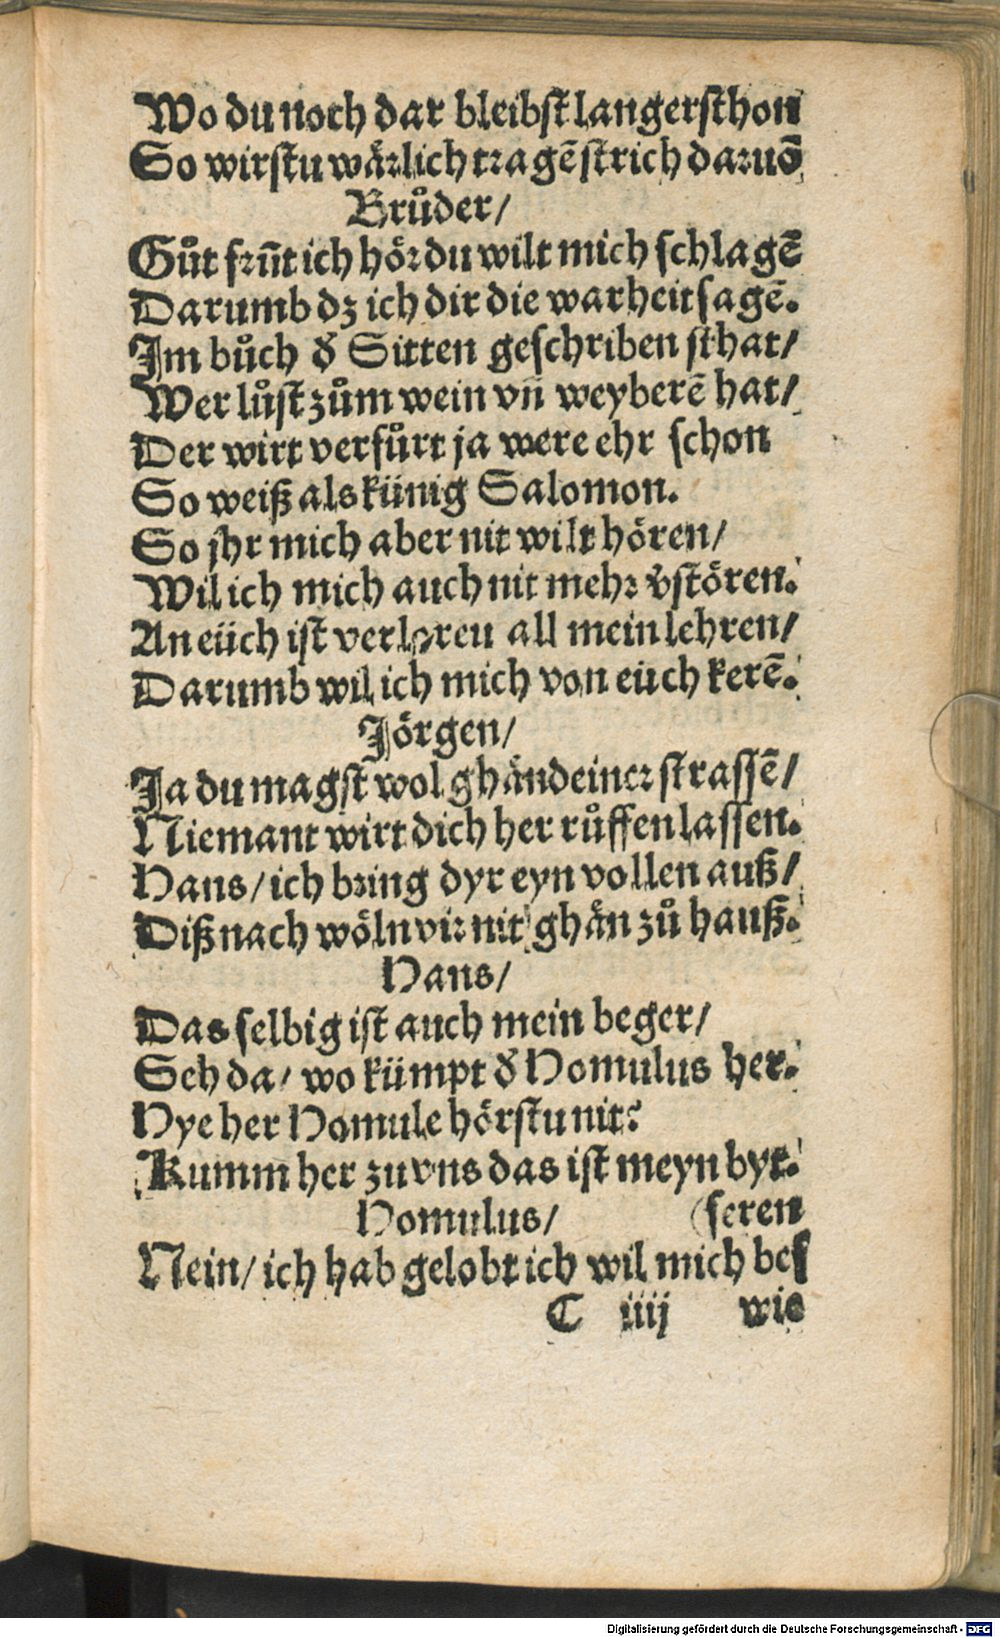 Wo du noch dar bleibst langer sthon
So wirstu wärlich tragē strich daruō
Brůder/
Gůt frūt ich hör du wilt mich schlagē
Darumb dz ich dir die warheit sagē.
Im bůch d̄ Sitten geschriben sthat/
Wer lůst zům wein vn̄ weyberē hat/
Der wirt verfůrt ja were ehr schon
So weiß als künig Salomon.
So jhr mich aber nit wilt hören/
Wil ich mich auch nit mehr v̄stören.
An eüch ist verloreu all mein lehren/
Darumb wil ich mich von euch kerē.
Jörgen/
Ja du magst wol ghān deiner strassē/
Niemant wirt dich her růffen lassen.
Hans/ ich bring dyr eyn vollen auß/
Diß nach wöln vir nit ghān zů hauß.
Hans/
Das selbig ist auch mein beger/
Seh da/ wo kümpt d̄ Homulus her.
Hye her Homule hörstu nit?
Kumm her zu vns das ist meyn byt.
Homulus/ (seren
Nein/ ich hab gelobt ich wil mich bes
C iiij wie
Digitalisierung gefördert durch die Deutsche Forschungsgemeinschaft - DFG